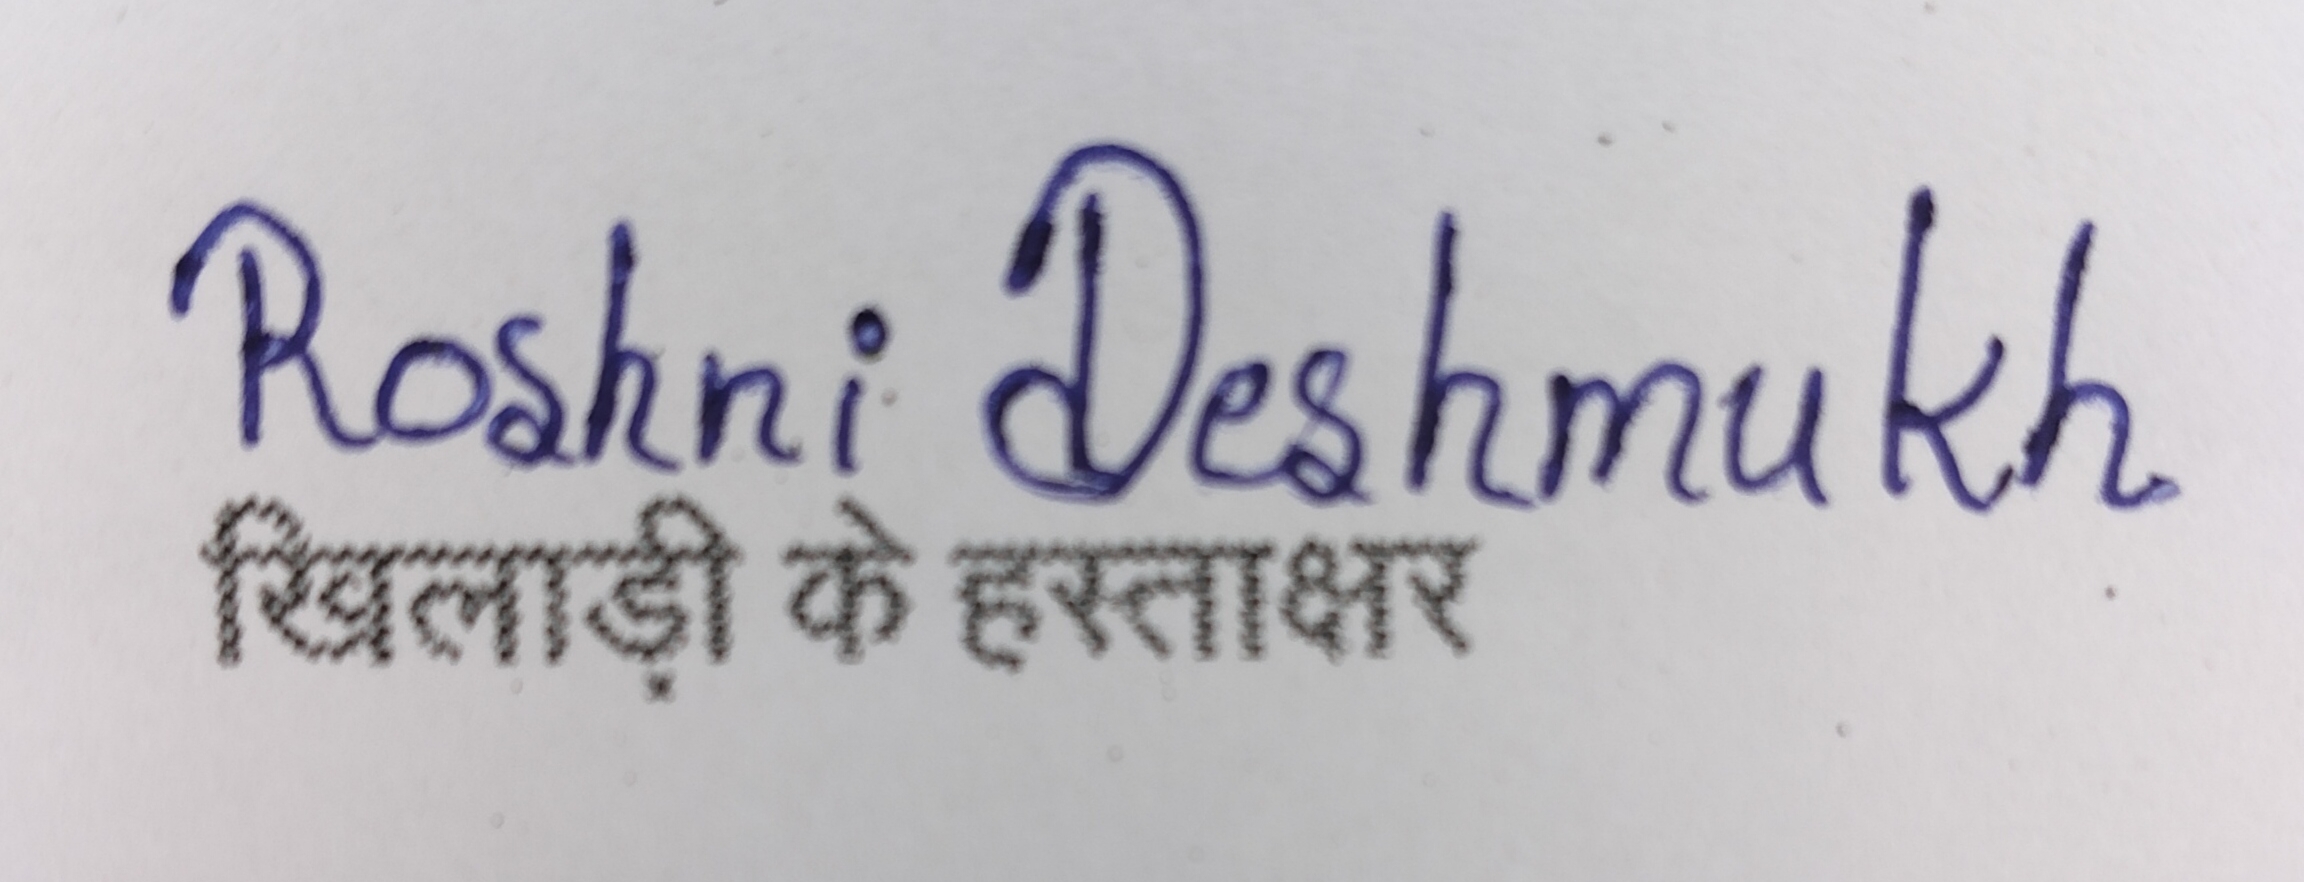 Roshni Deshmukh
खिलाड़ी के हस्ताक्षर